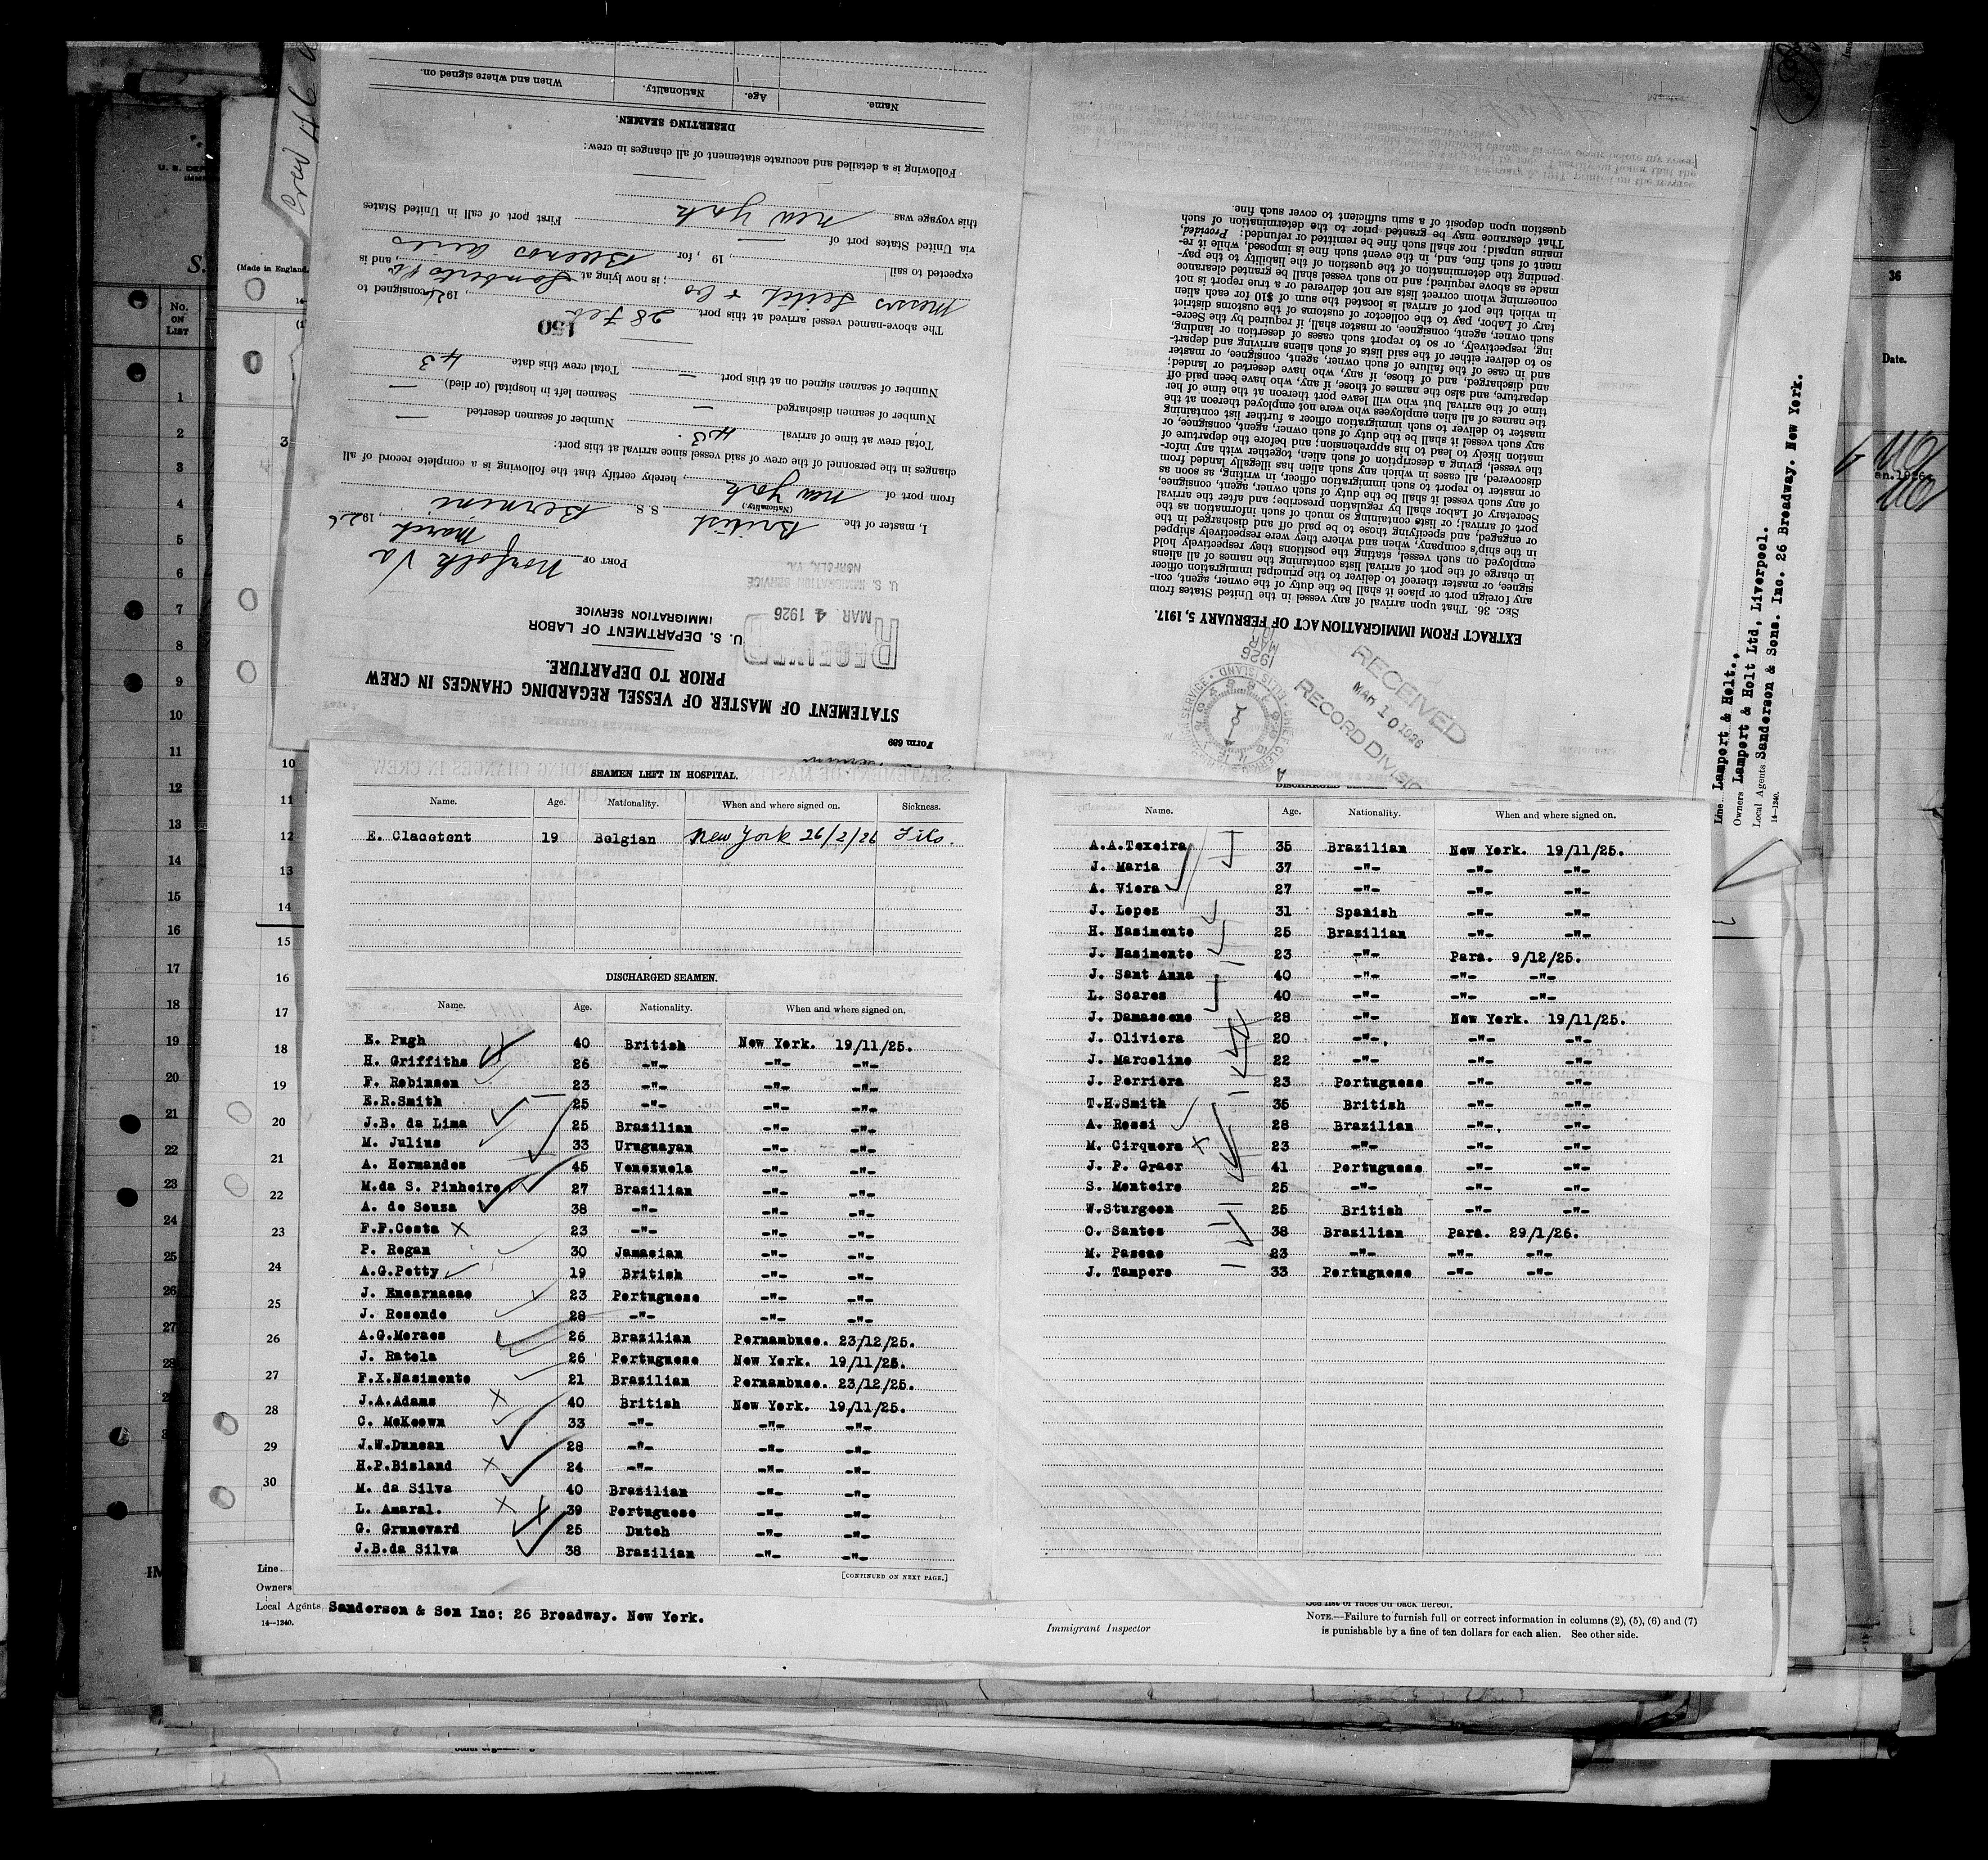 Form 689
STATEMENT OF MASTER OF VESSEL REGARDING CHANGES IN CREW
PRIOR TO DEPARTURE.
U. S. DEPARTMENT OF LABOR
IMMIGRATION SERVICE
RECEIVED
MAR. 4 1926
U. S. IMMIGRATION SERVICE
NORFOLK, VA.
PORT OF Norfolk Va
March, 1926
I, master of the British S. S. Bernini
(Nationality.)
from port of New York, hereby certify that the following is a complete record of all
changes in the personnel of the crew of said vessel since arrival at this port:
Total crew at time of arrival 43. Number of seamen deserted —
Number of seamen discharged — Seamen left in hospital (or died) —
Number of seamen signed on at this port — Total crew this date 43
150
The above-named vessel arrived at this port 28 Feb, 1926, consigned to
Messrs Leitch & Co; is now lying at Lamberts Pt, and is
expected to sail , 19 , for Buenos Aires
via United States port of —
this voyage was New York First port of call in United States
Following is a detailed and accurate statement of all changes in crew:
DESERTING SEAMEN.
Name. Age. Nationality. When and where signed on.
Crew 46
EXTRACT FROM IMMIGRATION ACT OF FEBRUARY 5, 1917.
SEC. 36. That upon arrival of any vessel in the United States from
any foreign port or place it shall be the duty of the owner, agent, con-
signee, or master thereof to deliver to the principal immigration officer
in charge of the port of arrival lists containing the names of all aliens
employed on such vessel, stating the positions they respectively hold
in the ship's company, when and where they were respectively shipped
or engaged, and specifying those to be paid off and discharged in the
port of arrival; or lists containing so much of such information as the
Secretary of Labor shall by regulation prescribe; and after the arrival
of any such vessel it shall be the duty of such owner, agent, consignee,
or master to report to such immigration officer, in writing, as soon as
discovered, all cases in which any such alien has illegally landed from
the vessel, giving a description of such alien, together with any infor-
mation likely to lead to his apprehension; and before the departure of
any such vessel it shall be the duty of such owner, agent, consignee, or
master to deliver to such immigration officer a further list containing
the names of all alien employees who were not employed thereon at the
time of the arrival but who will leave port thereon at the time of her
departure, and also the names of those, if any, who have been paid off
and discharged, and of those, if any, who have deserted or landed;
and in case of the failure of such owner, agent, consignee, or master
so to deliver either of the said lists of such aliens arriving and depart-
ing, respectively, or so to report such cases of desertion or landing,
such owner, agent, consignee, or master shall, if required by the Secre-
tary of Labor, pay to the collector of customs of the customs district
in which the port of arrival is located the sum of $10 for each alien
concerning whom correct lists are not delivered or a true report is not
made as above required; and no such vessel shall be granted clearance
pending the determination of the question of the liability to the pay-
ment of such fine, and, in the event such fine is imposed, while it re-
mains unpaid; nor shall such fine be remitted or refunded: Provided,
That clearance may be granted prior to the determination of such
question upon deposit of a sum sufficient to cover such fine.
RECEIVED
MAR 10 1926
RECORD DIVISION
SEAMEN LEFT IN HOSPITAL.
Name. Age. Nationality. When and where signed on. Sickness.
E. Clacetent 19 Belgian New York 26/2/26
DISCHARGED SEAMEN.
Name. Age. Nationality. When and where signed on.
E. Pugh 40 British New York. 19/11/25.
H. Griffiths 26 -"- -"- -"-
F. Robinson 23 -"- -"- -"-
E.R.Smith 25 -"- -"- -"-
J.B. da Lima 25 Brazilian -"- -"-
M. Julius 33 Uruguayan -"- -"-
A. Hermandes 45 Venezuela -"- -"-
M.da S. Pinheiro 27 Brazilian -"- -"-
A. de Souza 38 -"- -"- -"-
F.F.Costa 23 -"- -"- -"-
P. Regan 30 Jamacian -"- -"-
A.G.Petty 19 British -"- -"-
J. Encarnacao 23 Portuguese -"- -"-
J. Resende 28 -"- -"- -"-
A.G.Moraes 26 Brazilian Pernambuco. 23/12/25.
J. Ratola 26 Portuguese New York. 19/11/25.
F.X.Nasimento 21 Brazilian Pernambuco. 23/12/25.
J.A.Adams 40 British New York. 19/11/25.
C. McKeown 33 -"- -"- -"-
J.W.Duncan 28 -"- -"- -"-
H.P.Bisland 24 -"- -"- -"-
M. da Silva 40 Brazilian -"- -"-
L. Amaral. 39 Portuguese -"- -"-
G. Grunevard 25 Dutch -"- -"-
J.B.da Silva 38 Brazilian -"- -"-
[CONTINUED ON NEXT PAGE.]
DISCHARGED SEAMEN.
Name. Age. Nationality. When and where signed on.
A.A.Texeira 35 Brazilian New York. 19/11/25.
J. Maria 37 -"- -"- -"-
A. Viera 27 -"- -"- -"-
J. Lopez 31 Spanish -"- -"-
H. Nasimento 25 Brazilian -"- -"-
J. Nasimento 23 -"- Para. 9/12/25.
J. Sant Anna 40 -"- -"- -"-
L. Soares 40 -"- -"- -"-
J. Damascene 28 -"- New York. 19/11/25.
J. Oliviera 20 -"- -"- -"-
J. Marceline 22 -"- -"- -"-
J. Perriera 23 Portuguese -"- -"-
T.H.Smith 35 British -"- -"-
A. Rossi 28 Brazilian -"- -"-
M. Cirquera 23 -"- -"- -"-
J. P. Graer 41 Portuguese -"- -"-
S. Monteiro 25 -"- -"- -"-
W.Sturgeon 25 British -"- -"-
O. Santos 38 Brazilian Para. 29/1/26.
M. Pascae 23 -"- -"- -"-
J. Tampero 33 Portuguese -"- -"-
Line
Owners
Local Agents Sanderson & Son Inc: 26 Broadway. New York.
14—1240.
Immigrant Inspector
See list of races on back hereof.
NOTE.—Failure to furnish full or correct information in columns (2), (5), (6) and (7)
is punishable by a fine of ten dollars for each alien. See other side.
Line Lampert & Holt.,
Owners Lampert & Holt Ltd, Liverpool.
Local Agents Sanderson & Sons. Inc. 26 Broadway. New York.
14—1240.
(Made in England.
No.
ON
LIST
36
Date.